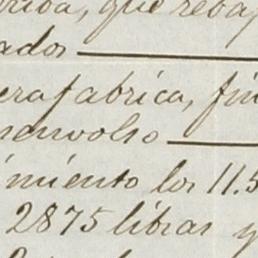 que reba
ados
era fabrica, fin
senvolso
imiento los 11.5
2875 libras y